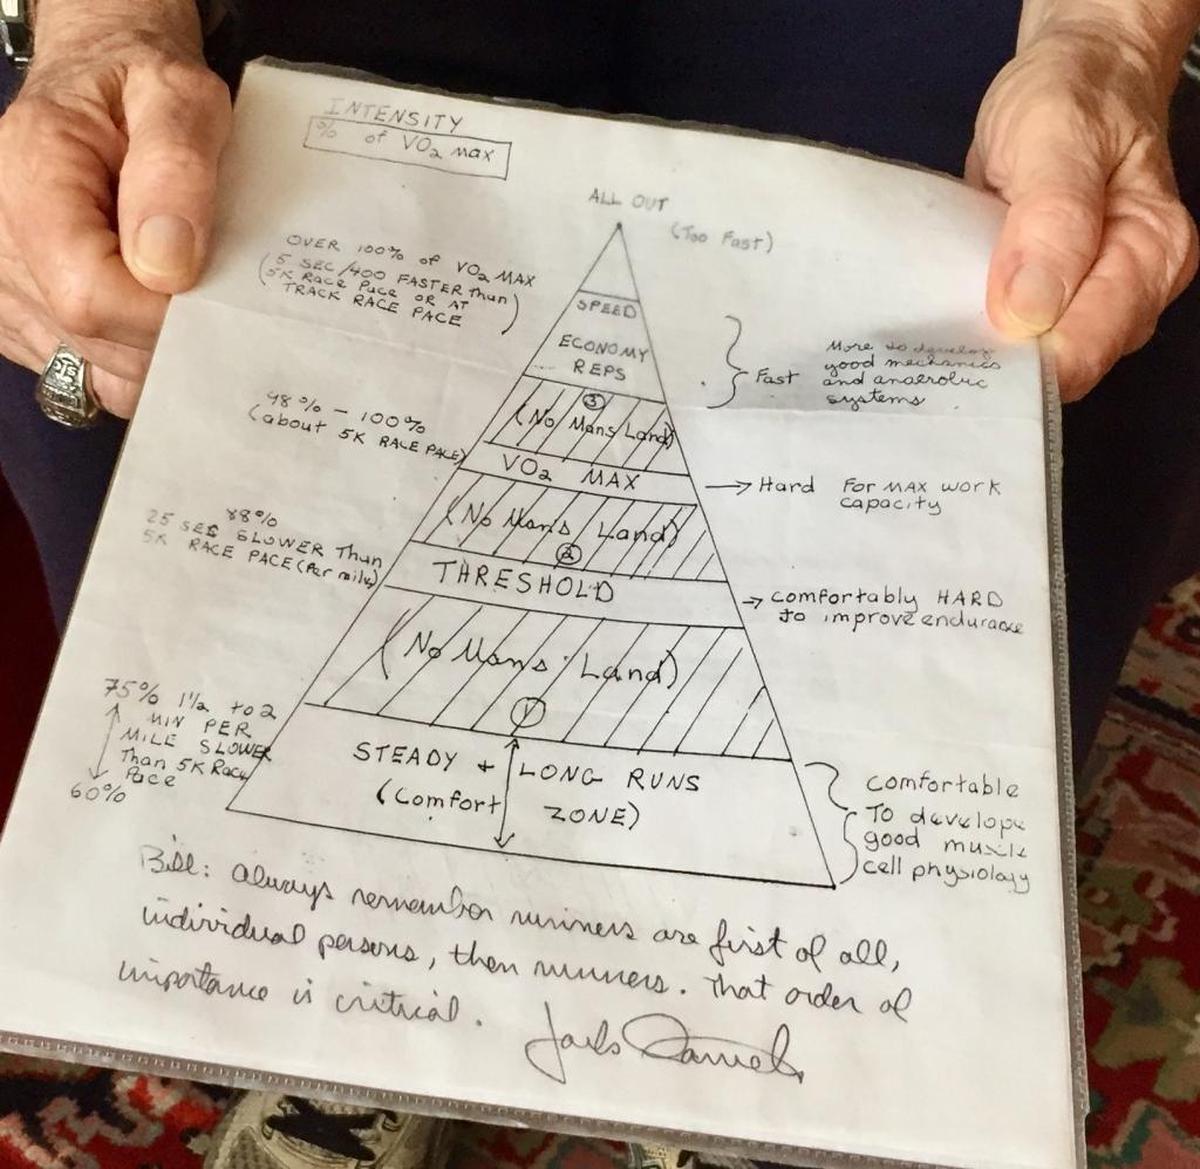 INTENSITY
% of VO2 max
ALL OUT
(Too Fast)
OVER 100% of VO2 MAX
(5 SEC/400 FASTER than
5K Race Pace OR AT
TRACK RACE PACE)
SPEED
ECONOMY
REPS
Fast
More to develop
good mechanics
and anaerobic
systems
3
(No Mans Land)
98% - 100%
(about 5K RACE PACE)
VO2 MAX
Hard For MAX WORK
CAPACITY
(No Mans Land)
2
88%
25 SEC SLOWER Than
5K RACE PACE (Per mile)
THRESHOLD
Comfortably HARD
to improve endurance
(No Mans Land)
1
75% 1½ to 2
MIN PER
MILE SLOWER
Than 5K Race
Pace
60%
STEADY + LONG RUNS
(Comfort ZONE)
Comfortable
To develope
good muscle
cell physiology
Bill: Always remember runners are first of all,
individual persons, then runners. That order of
importance is critical.
Jack Daniels